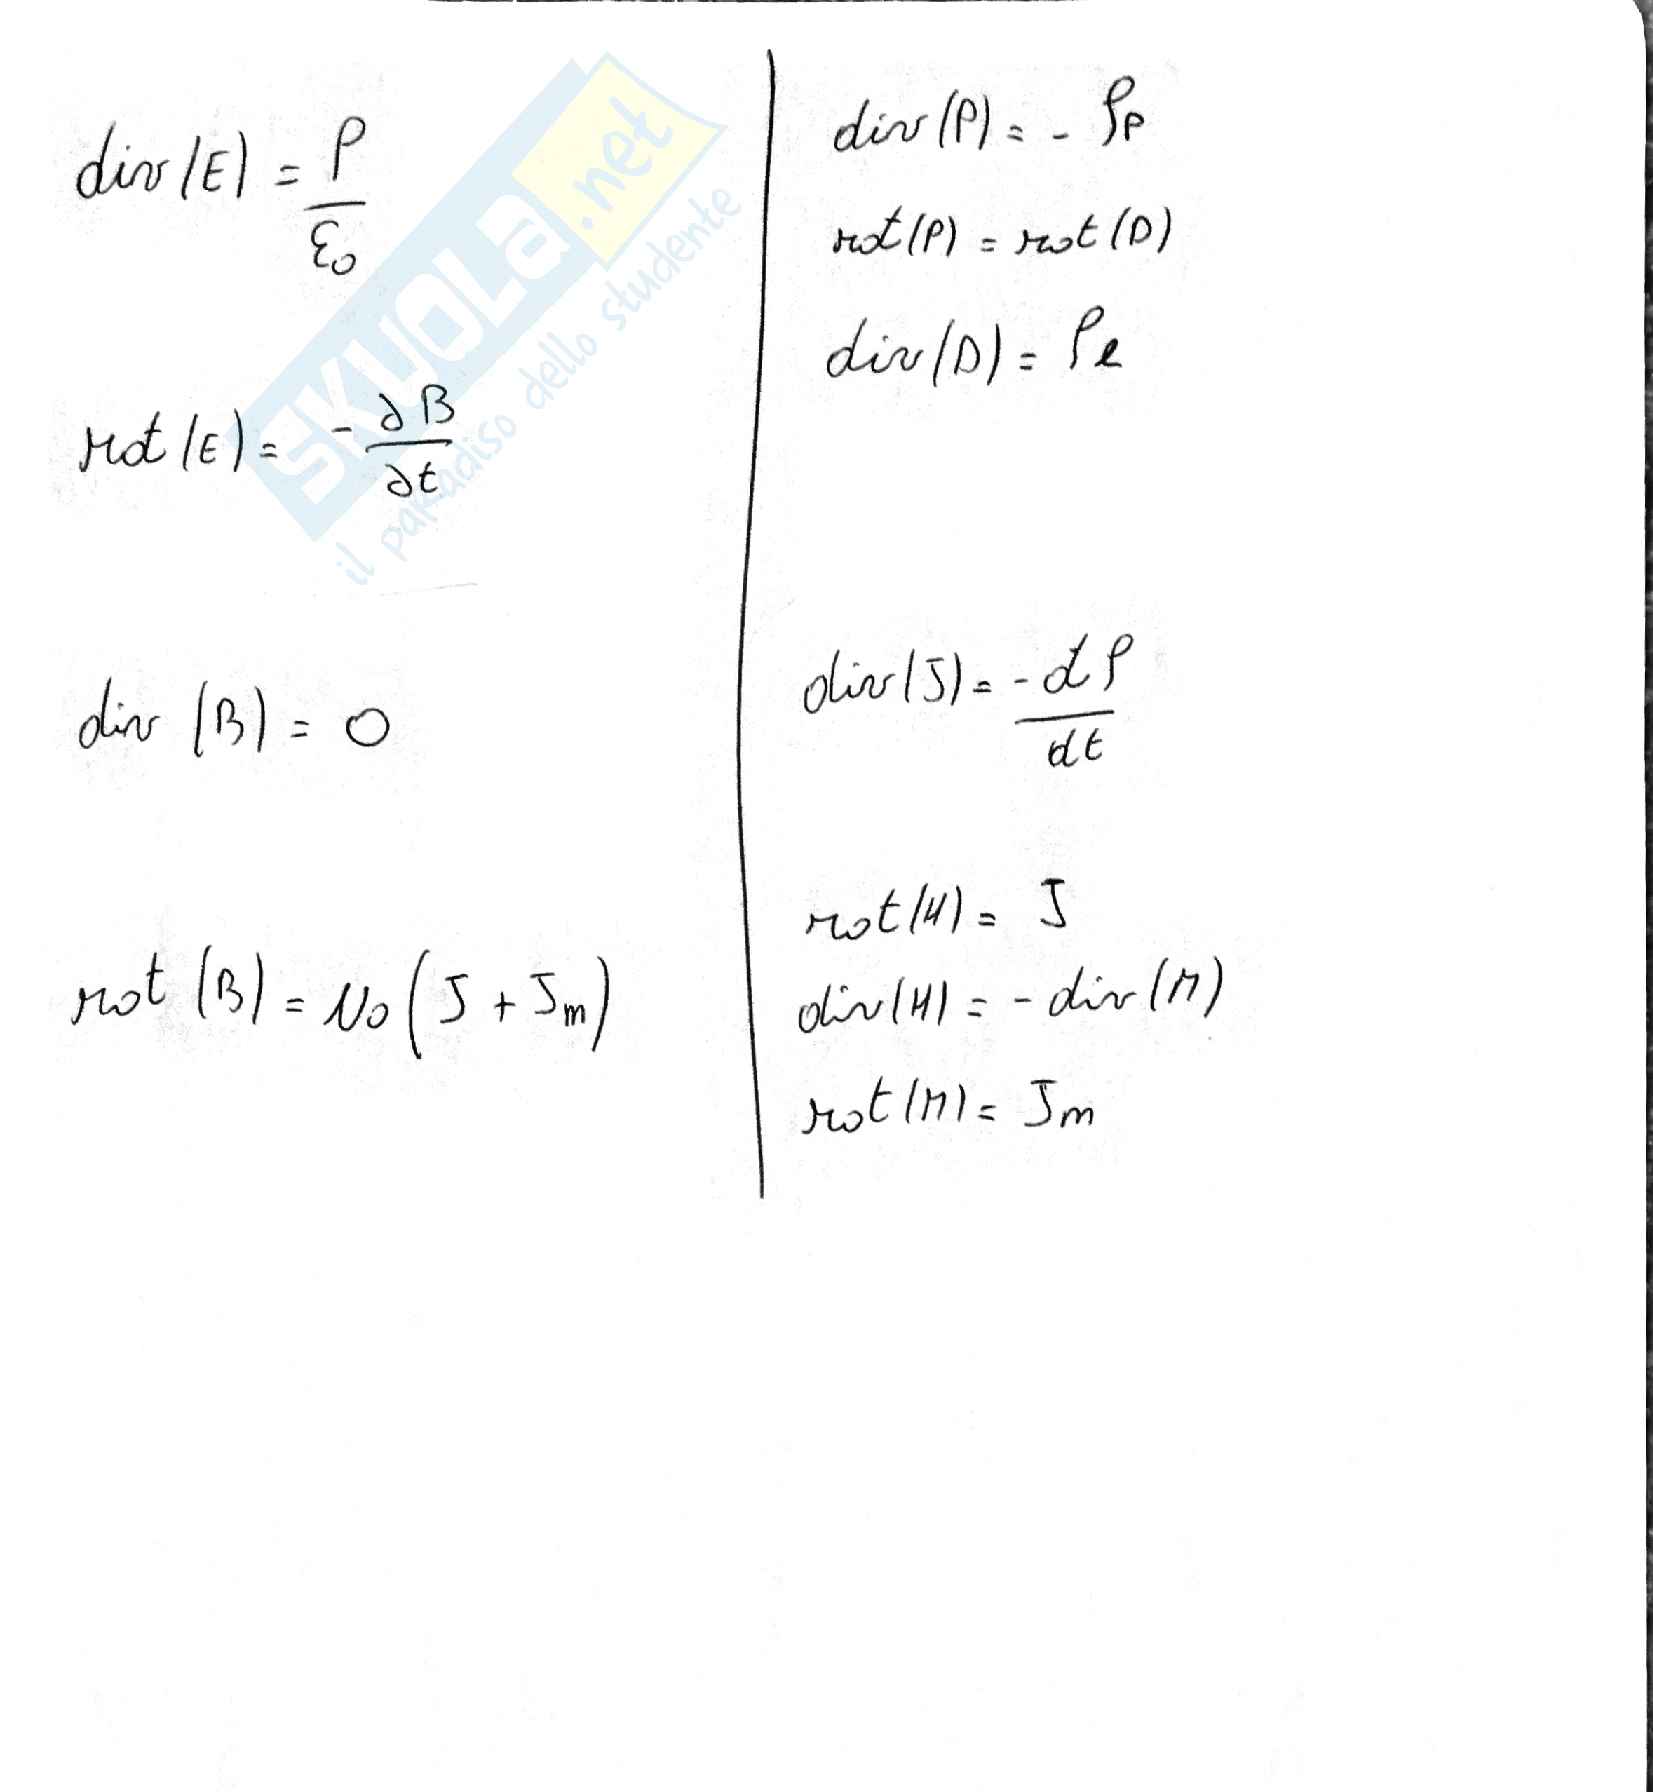 div(E) = ρ/ε₀
rot(E) = -∂B/∂t
div(B) = 0
rot(B) = μ₀(J + Jm)
div(P) = -ρP
rot(P) = rot(D)
div(D) = ρe
div(J) = -dρ/dt
rot(H) = J
div(H) = -div(M)
rot(M) = Jm
SKUOLA.net
il paradiso dello studente